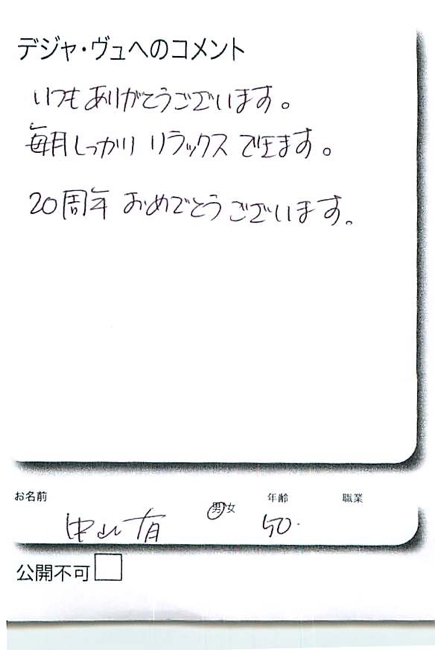 デジャ・ヴュへのコメント
いつもありがとうございます。
毎月しっかりリラックスできます。
20周年おめでとうございます。
お名前 男女 年齢 職業
中山有 50.
公開不可